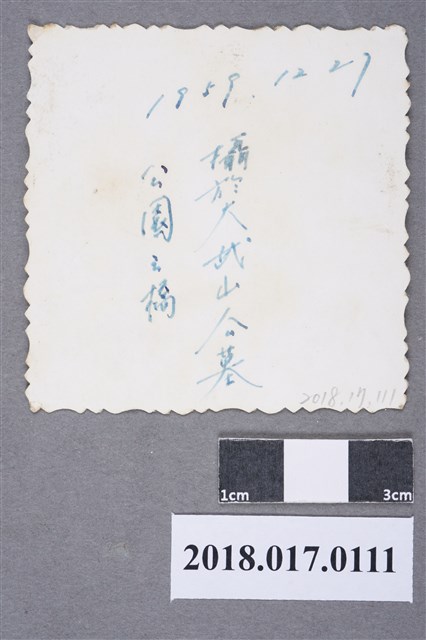 1959.12 27
攝於大武山公墓
公園之橋
2018.17.111
1cm 3cm
2018.017.0111